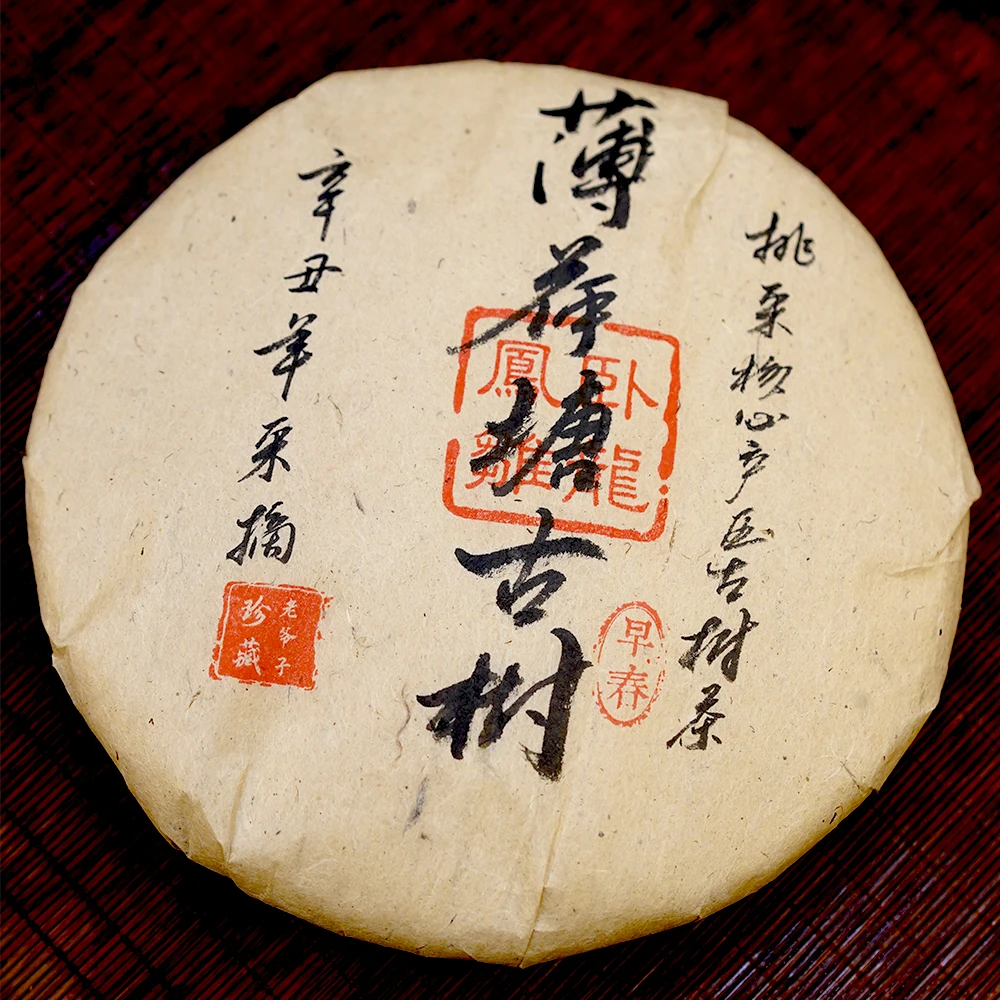 挑采核心产区古树茶
薄荷塘古树
卧龍
鳳雛
早春
辛丑年采摘
老爷子
珍藏